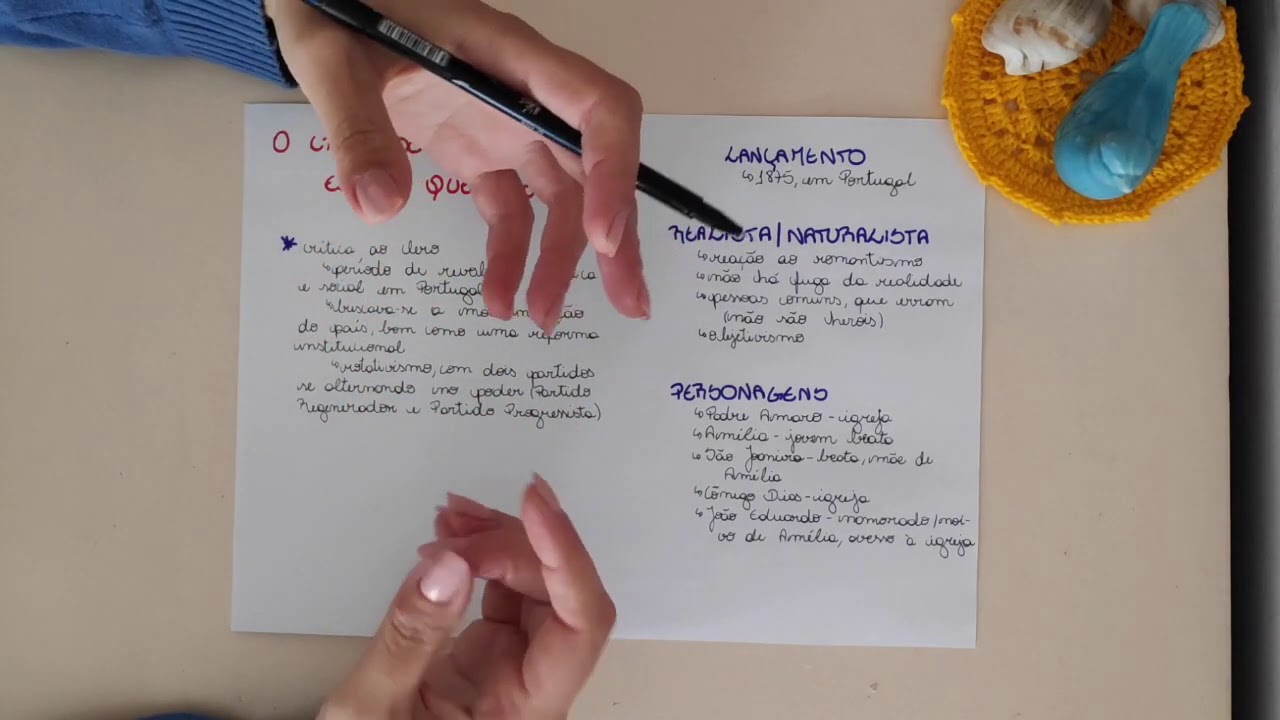 O
QUE
* crítica ao clero
↳ período de
e social em Portugal
↳ buscava-se a
do país, bem como uma reforma
institucional
↳ rotativismo, com dois partidos
se alternando no poder (Partido
Regenerador e Partido Progressista)
LANÇAMENTO
↳ 1875, em Portugal
REALISTA/NATURALISTA
↳ reação ao romantismo
↳ não há fuga da realidade
↳ pessoas comuns, que erram
(não são heróis)
↳ objetivismo
PERSONAGENS
↳ Padre Amaro - igreja
↳ Amélia - jovem beata
↳ São Joaneira - beata, mãe de
Amélia
↳ Cônego Dias - igreja
↳ João Eduardo - namorado/noi-
vo de Amélia, avesso à igreja